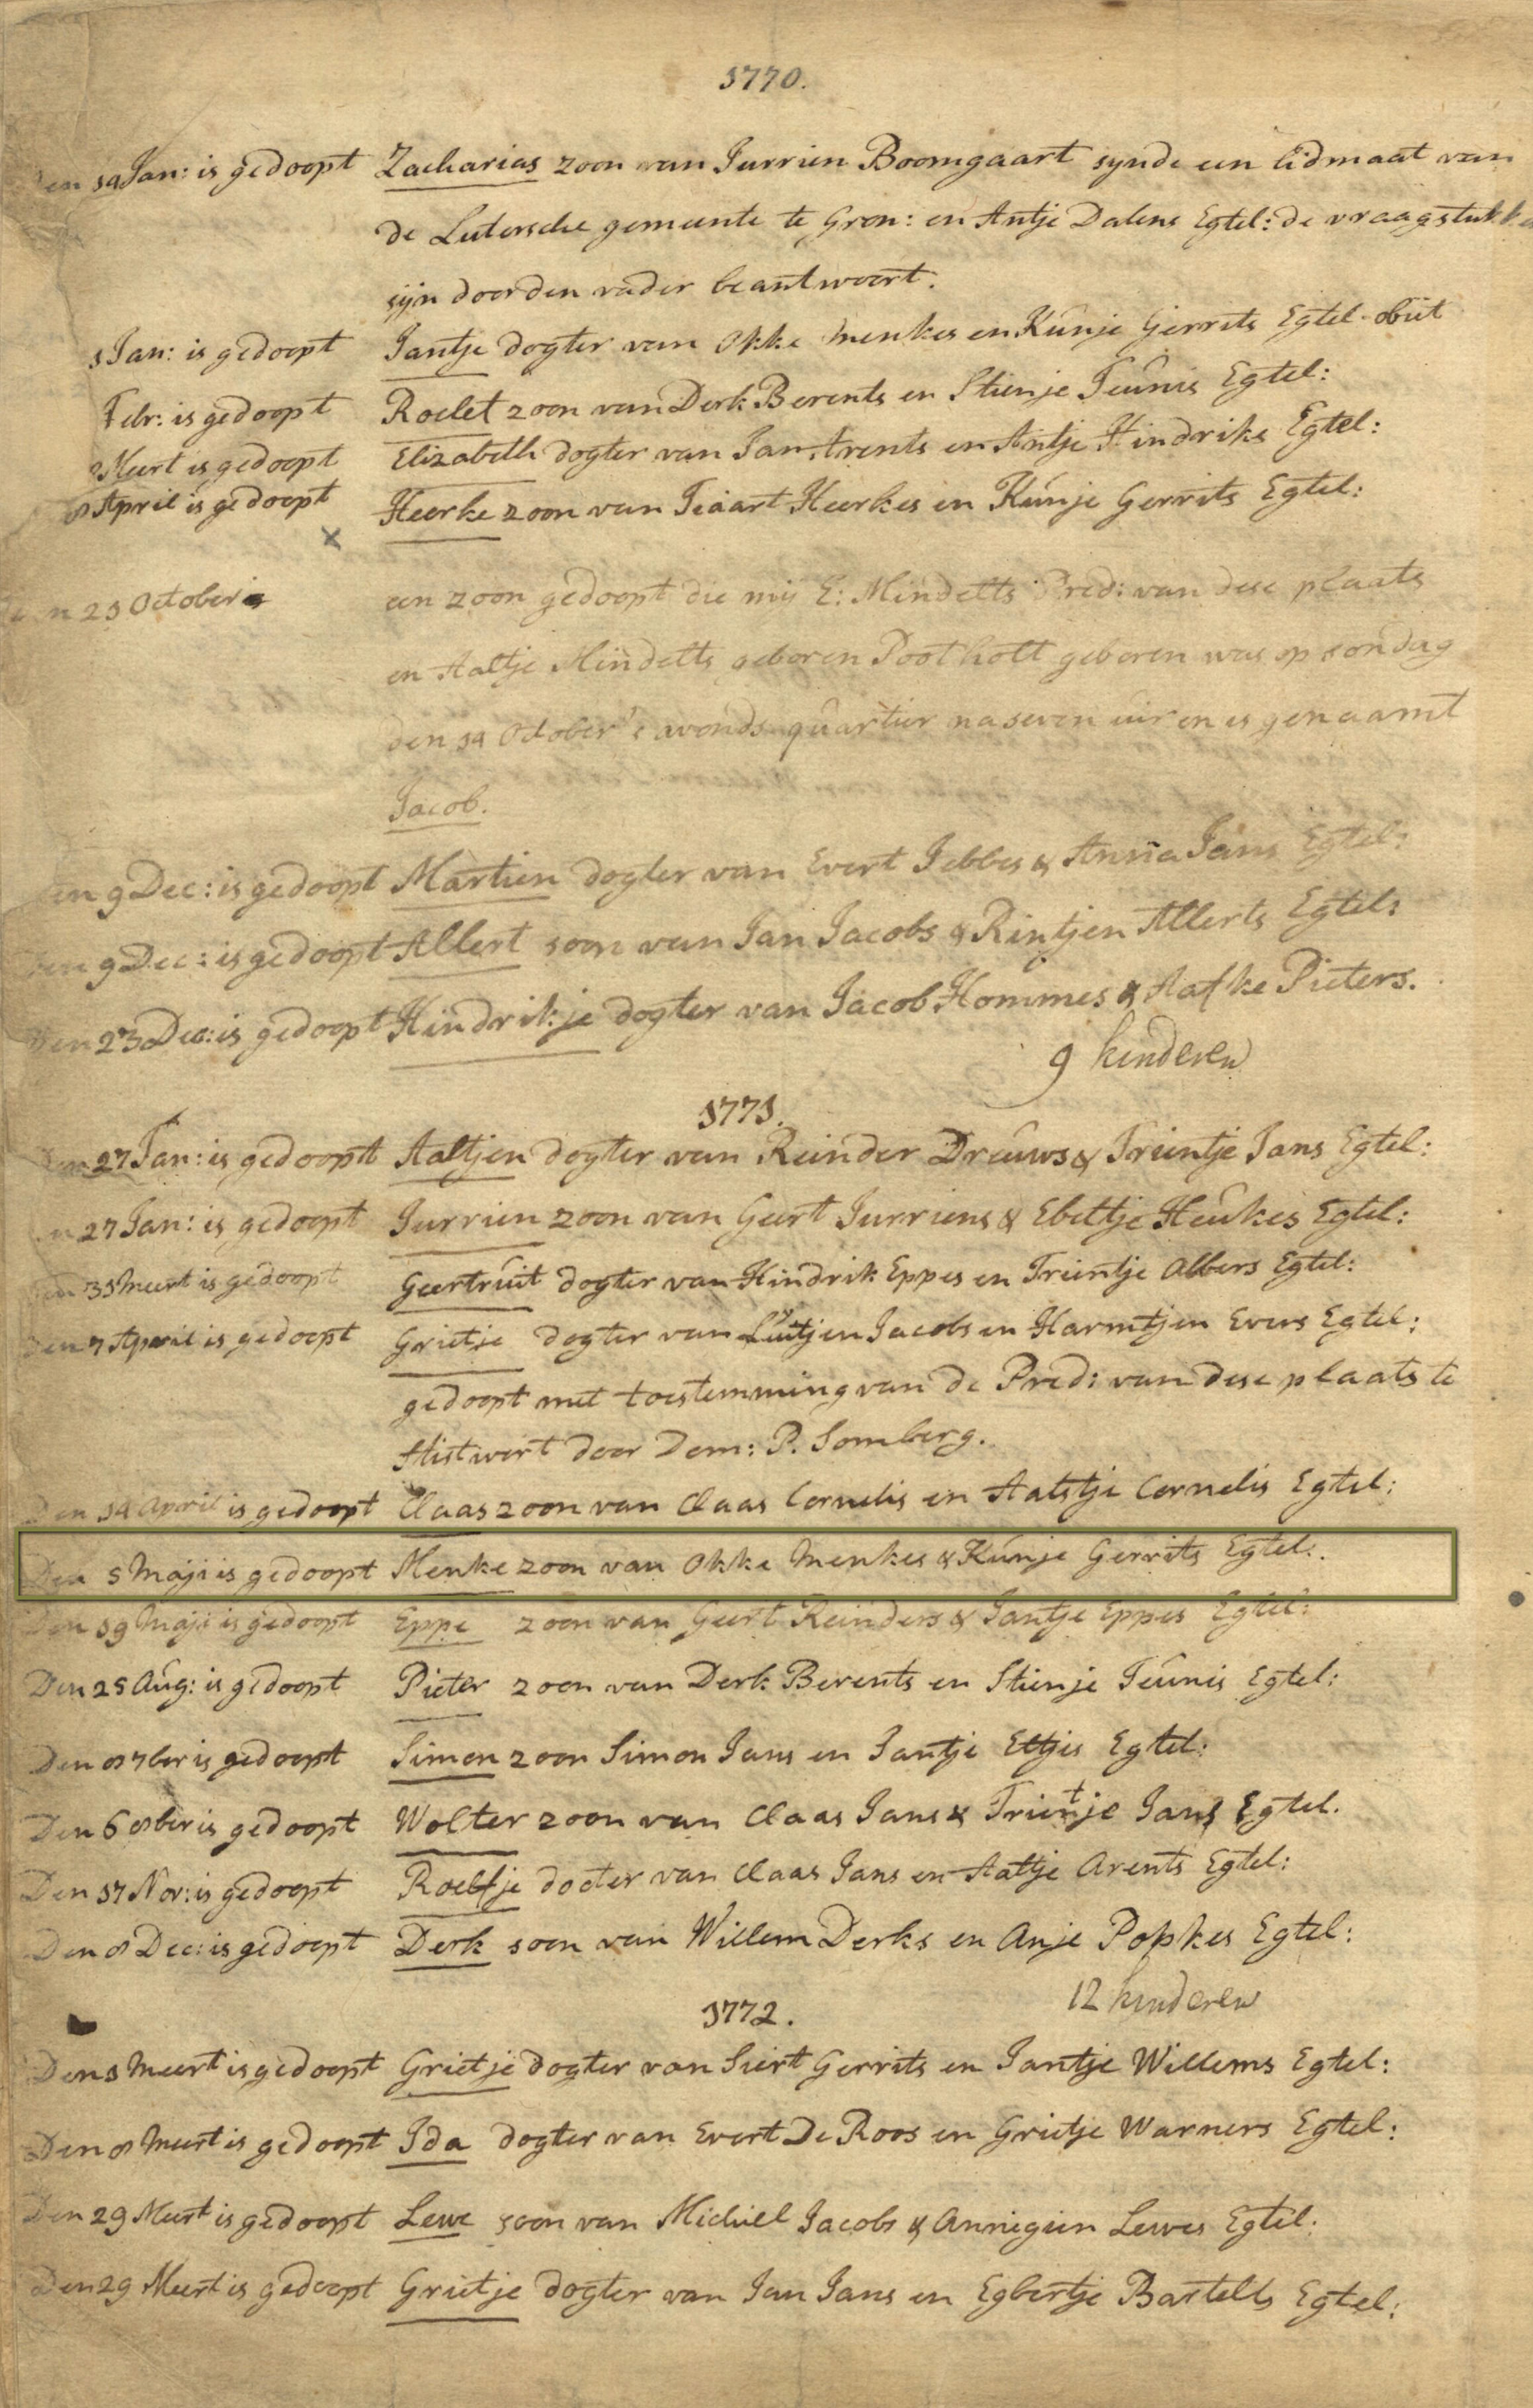 1770.
14 Jan: is gedoopt Zacharias zoon van Jurrien Boomgaart synde een lidmaat van
de Lutersche gemeente te Gron: en Antje Dalens Egtel: de vraagstukke
sijn door den vader beantwoort.
Jan: is gedoopt Jantje dogter van Okke Menkes en Kunje Gerrits Egtel. obiit
Febr: is gedoopt Roelet zoon van Derk Berents en Stienje Teunis Egtel:
Meert is gedoopt Elizabeth dogter van Jan Arents en Antje Hindriks Egtel:
April is gedoopt Heerke zoon van Tiaart Heerkes en Kunje Gerrits Egtel:
October is een zoon gedoopt die mij E: Mindelts Pred: van dese plaats
en Aaltje Mindelts geboren Pootholt geboren was op sondag
den 14 October 's avonds quartier na seven uir en is genaamt
Jacob.
9 Dec: is gedoopt Martien dogter van Evert Jebbes & Anna Jans Egtel:
9 Dec: is gedoopt Allert soon van Jan Jacobs & Rintjen Allerts Egtel:
Den 23 Dec: is gedoopt Hindrikje dogter van Jacob Hommes & Aafke Pieters.
9 kinderen
1771.
Den 27 Jan: is gedoopt Aaltjen dogter van Reinder Dreuws & Trientje Jans Egtel:
27 Jan: is gedoopt Jurrien zoon van Geert Jurriens & Ebeltje Heukes Egtel:
31 Meert is gedoopt Geertruit dogter van Hindrik Eppes en Trientje Albers Egtel:
Den 7 April is gedoopt Grietje dogter van Luitjen Jacobs en Harmtjen Evers Egtel:
gedoopt met toestemming van de Pred: van dese plaats te
door Dom: P. Somberg.
Den 14 April is gedoopt Claas zoon van Claas Cornelis en Aalstje Cornelis Egtel:
Den 5 Maji is gedoopt Menke zoon van Okke Menkes & Kunje Gerrits Egtel:
Den 19 Maji is gedoopt Eppe zoon van Geert Reinders & Jantje Eppes Egtel:
Den 25 Aug: is gedoopt Pieter zoon van Derk Berents en Stienje Teunis Egtel:
Den 8 7ber is gedoopt Simon zoon Simon Jans en Jantje Eltjes Egtel:
Den 6 8ber is gedoopt Wolter zoon van Claas Jans & Trientje Jans Egtel.
Den 17 Nov: is gedoopt Roeltje docter van Claas Jans en Aaltje Arents Egtel:
Den 8 Dec: is gedoopt Derk soon van Willem Derks en Anje Popkes Egtel:
12 kinderen
1772.
Den Meert is gedoopt Grietje dogter van Siert Gerrits en Jantje Willems Egtel:
Den 8 Meert is gedoopt Ida dogter van Evert De Roos en Grietje Warners Egtel:
Den 29 Meert is gedoopt Lewe soon van Michiel Jacobs & Annigien Lewes Egtel:
Den 29 Meert is gedoopt Grietje dogter van Jan Jans en Egbertje Bartelts Egtel: